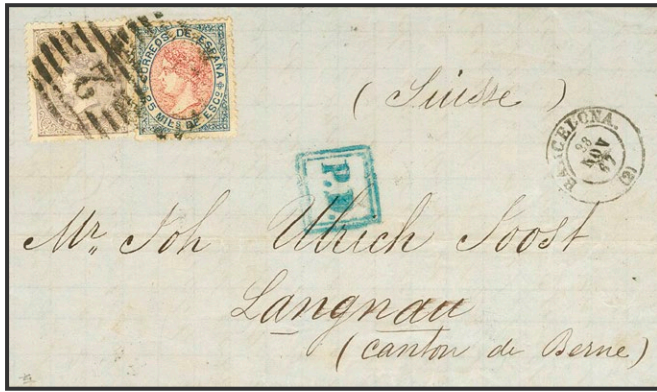 CORREOS DE ESPAÑA
25 MILS DE ESCO
2
(Suisse)
BARCELONA.
NOV
(2)
Mr. Joh Ulrich Joost
Langnau
(canton de Berne)